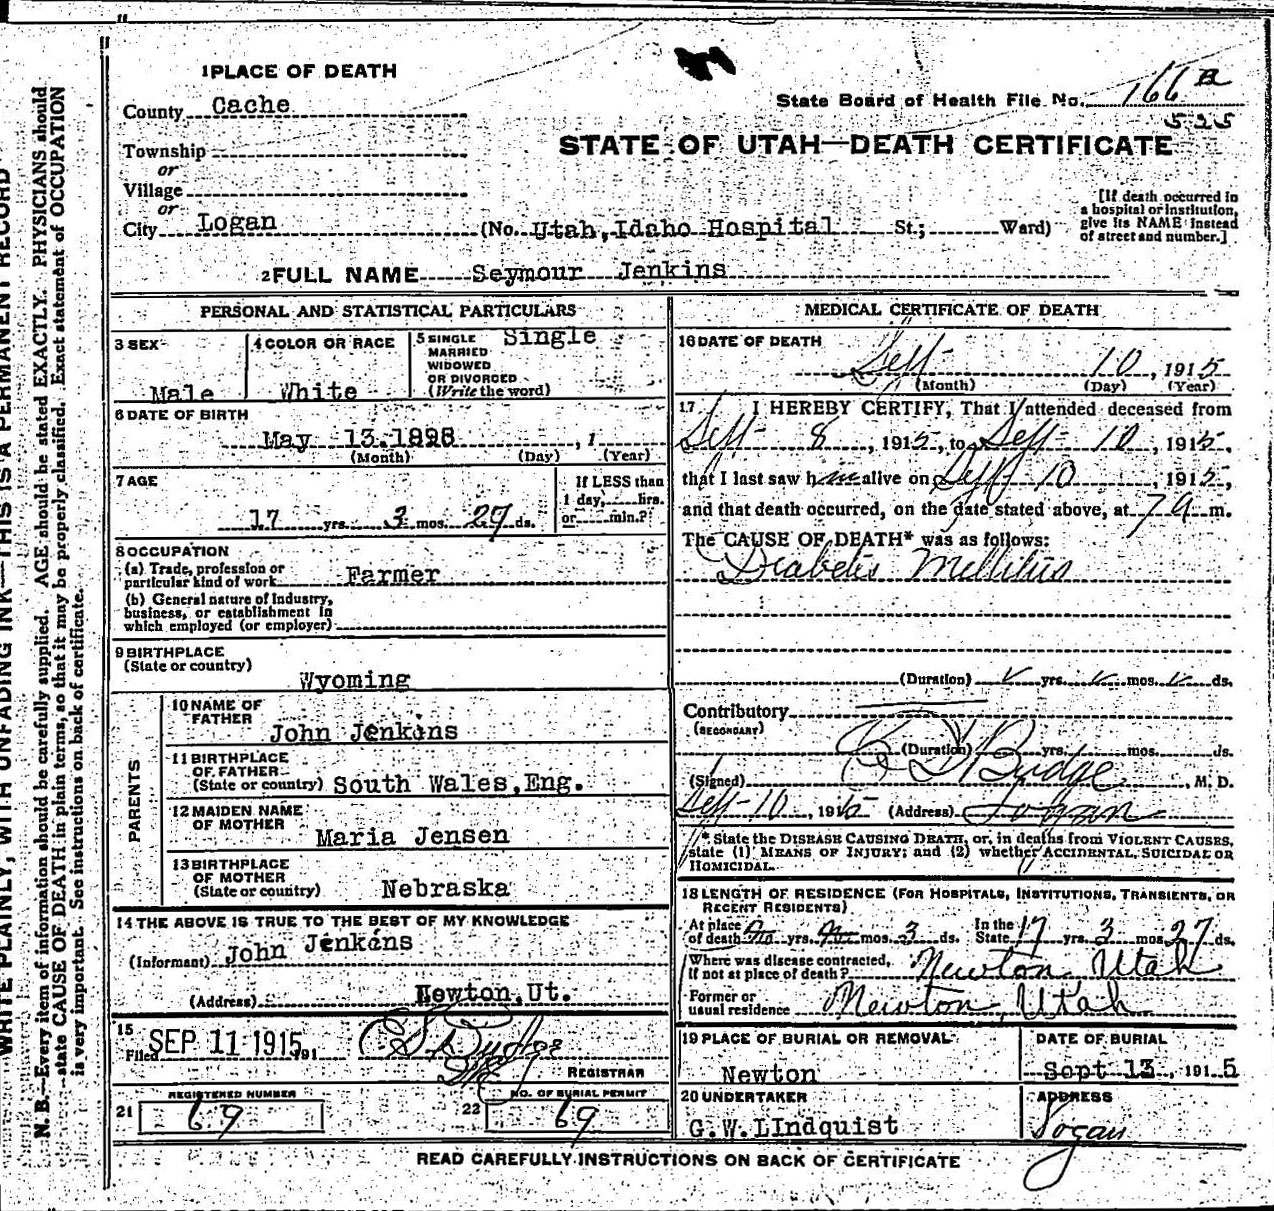 1 PLACE OF DEATH
County Cache
State Board of Health File No. 166 B
525
STATE OF UTAH—DEATH CERTIFICATE
Township
or
Village
or
City Logan (No. Utah, Idaho Hospital St.; Ward)
[If death occurred in
a hospital or institution,
give its NAME instead
of street and number.]
2 FULL NAME Seymour Jenkins
PERSONAL AND STATISTICAL PARTICULARS
3 SEX
Male
4 COLOR OR RACE
White
5 SINGLE
MARRIED
WIDOWED
OR DIVORCED
(Write the word)
Single
6 DATE OF BIRTH
May 13.1898 , 1
(Month) (Day) (Year)
7 AGE
17 yrs. 3 mos. 27 ds.
If LESS than
1 day, hrs.
or min.?
8 OCCUPATION
(a) Trade, profession or
particular kind of work Farmer
(b) General nature of Industry,
business, or establishment in
which employed (or employer)
9 BIRTHPLACE
(State or country)
Wyoming
PARENTS
10 NAME OF
FATHER
John Jenkins
11 BIRTHPLACE
OF FATHER
(State or country) South Wales, Eng.
12 MAIDEN NAME
OF MOTHER
Maria Jensen
13 BIRTHPLACE
OF MOTHER
(State or country) Nebraska
14 THE ABOVE IS TRUE TO THE BEST OF MY KNOWLEDGE
(Informant) John Jenkins
(Address) Newton, Ut.
15
Filed SEP 11 1915, 191
REGISTRAR
REGISTERED NUMBER
21 69
NO. OF BURIAL PERMIT
22 69
MEDICAL CERTIFICATE OF DEATH
16 DATE OF DEATH
Sept 10, 1915
(Month) (Day) (Year)
17 I HEREBY CERTIFY, That I attended deceased from
Sept 8, 1915, to Sept 10, 1915,
that I last saw him alive on Sept 10, 1915,
and that death occurred, on the date stated above, at 7 a m.
The CAUSE OF DEATH* was as follows:
Diabetis Mellitus
(Duration) yrs. mos. ds.
Contributory
(SECONDARY)
(Duration) yrs. mos. ds.
(Signed) Budge, M. D.
Sept 10, 1915 (Address) Logan
* State the DISEASE CAUSING DEATH, or, in deaths from VIOLENT CAUSES,
state (1) MEANS OF INJURY; and (2) whether ACCIDENTAL, SUICIDAL OR
HOMICIDAL.
18 LENGTH OF RESIDENCE (FOR HOSPITALS, INSTITUTIONS, TRANSIENTS, OR
RECENT RESIDENTS)
At place
of death no yrs. no mos. 3 ds. In the
State 17 yrs. 3 mos. 27 ds.
Where was disease contracted,
if not at place of death? Newton Utah
Former or
usual residence Newton, Utah
19 PLACE OF BURIAL OR REMOVAL
Newton
DATE OF BURIAL
Sept 13, 1915
20 UNDERTAKER
G.W.LIndquist
ADDRESS
Logan
READ CAREFULLY INSTRUCTIONS ON BACK OF CERTIFICATE
WRITE PLAINLY, WITH UNFADING INK—THIS IS A PERMANENT RECORD
N. B.—Every item of information should be carefully supplied. AGE should be stated EXACTLY. PHYSICIANS should
state CAUSE OF DEATH in plain terms, so that it may be properly classified. Exact statement of OCCUPATION
is very important. See instructions on back of certificate.